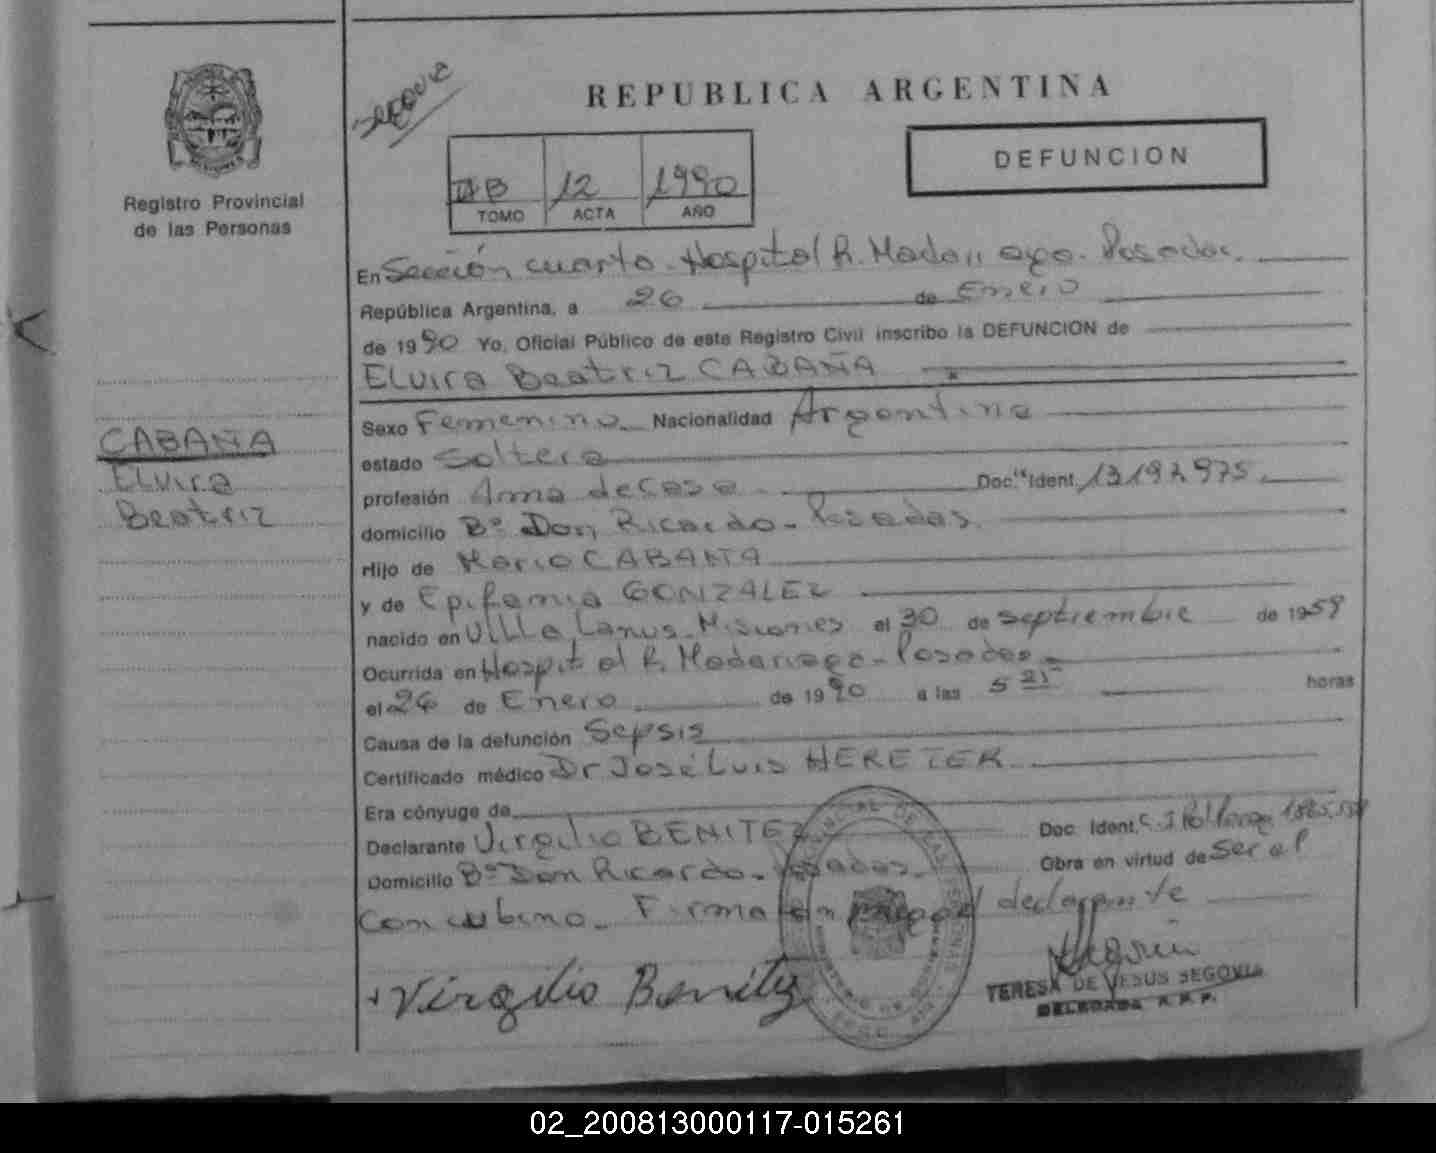 SEGOVIA
REPUBLICA ARGENTINA
DEFUNCION
Registro Provincial
de las Personas
B 12 1990
TOMO ACTA AÑO
En Sección cuarta - Hospital R. Madariaga - Posadas
República Argentina, a 26 de Enero
de 1990 Yo, Oficial Público de este Registro Civil inscribo la DEFUNCION de
Elvira Beatriz CABAÑA
CABAÑA
Elvira
Beatriz
Sexo Femenino Nacionalidad Argentina
estado Soltera
profesión Ama de Casa Doc. Ident. 13197975
domicilio Bº Don Ricardo - Posadas.
Hijo de Mario CABAÑA
y de Epifania GONZALEZ
nacido en Villa Lanus - Misiones el 30 de septiembre de 1959
Ocurrida en Hospital R. Madariaga - Posadas
el 26 de Enero de 1990 a las 5 horas
Causa de la defunción Sepsis
Certificado médico Dr José Luis HERETER
Era cónyuge de
Declarante Virgilio BENITEZ Doc. Ident. C. I.
Domicilio Bº Don Ricardo - Posadas. Obra en virtud de Ser el
Concubino. Firma declarante
Virgilio Benitez
TERESA DE JESUS SEGOVIA
DELEGADA R.P.P.
02_200813000117-015261